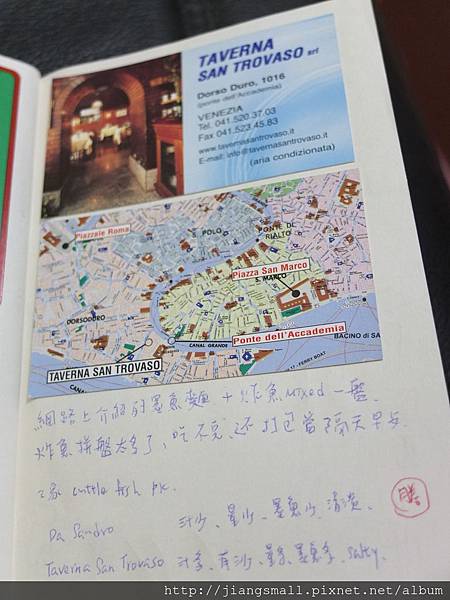 TAVERNA
SAN TROVASO srl
Dorso Duro, 1016
(ponte dell'Accademia)
VENEZIA
Tel. 041.520.37.03
Fax 041.523.45.83
www.tavernasantrovaso.it
E-mail: info@tavernasantrovaso.it
(aria condizionata)
Piazzale Roma
S. POLO
PONTE DI
RIALTO
Piazza San Marco
S. MARCO
DORSODURO
Ponte dell'Accademia
CANAL GRANDE
BACINO di SA
TAVERNA SAN TROVASO
17 - FERRY BOAT
網路上介紹的墨魚麵 + 炸魚 mixed 一盤
炸魚拼盤太多了、吃不完、還打包當隔天早午
2家 cuttle fish
Da Sandro 汁少、量少、墨魚少、清淡、
勝
Taverna San Trovaso 汁多、有沙、墨魚多、Salty.
http://jiangsmall.pixnet.net/album